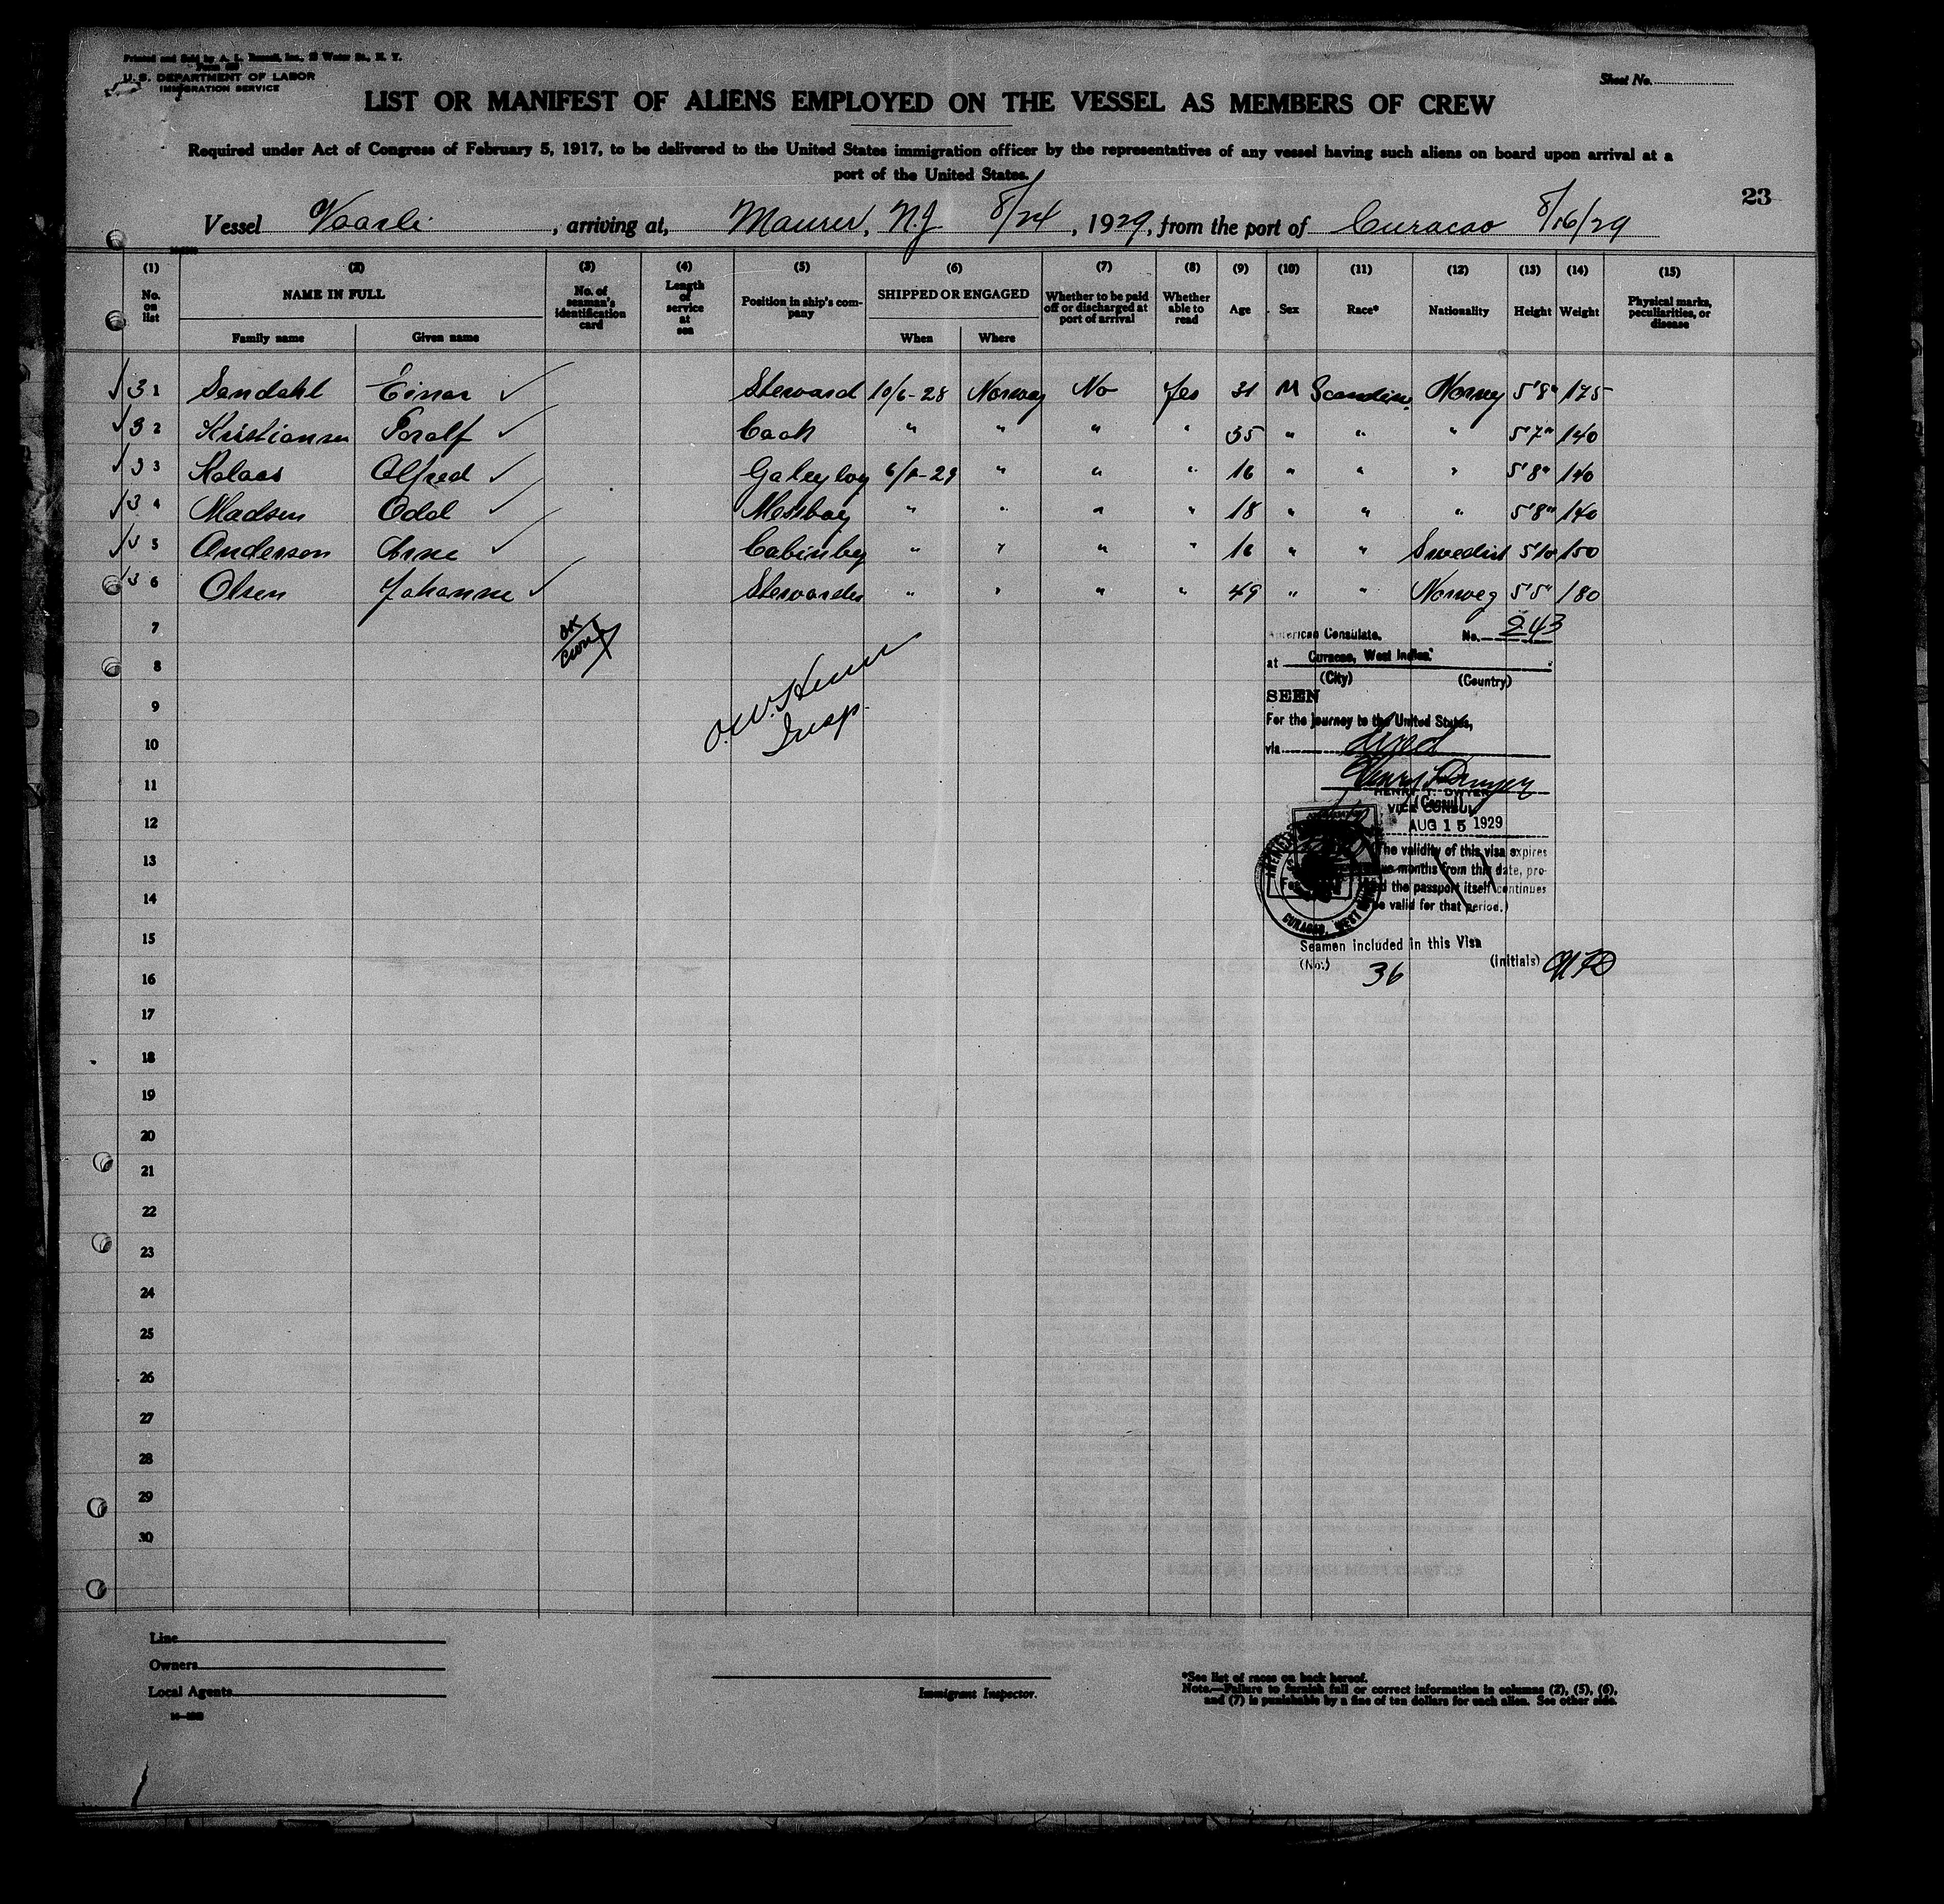 Printed and Sold by A. L. Russell, Inc., Water St., N. Y.
U. S. DEPARTMENT OF LABOR
IMMIGRATION SERVICE
Sheet No.
LIST OR MANIFEST OF ALIENS EMPLOYED ON THE VESSEL AS MEMBERS OF CREW
Required under Act of Congress of February 5, 1917, to be delivered to the United States immigration officer by the representatives of any vessel having such aliens on board upon arrival at a
port of the United States.
23
Vessel Vaarli, arriving at, Maurer, N.J. 8/24, 1929, from the port of Curacao 8/16/29
(1) (2) (3) (4) (5) (6) (7) (8) (9) (10) (11) (12) (13) (14) (15)
No. on list NAME IN FULL No. of seaman's identification card Length of service at sea Position in ship's company SHIPPED OR ENGAGED Whether to be paid off or discharged at port of arrival Whether able to read Age Sex Race* Nationality Height Weight Physical marks, peculiarities, or disease
Family name Given name When Where
31 Sandahl Einar Steward 10/6-28 Norway No Yes 31 M Scandin. Norweg 5'8" 175
32 Kristiansen Toralf Cook " " " " 35 " " " 5'7" 140
33 Kalaas Alfred Galeyboy 6/1-29 " " " 16 " " " 5'8" 140
34 Madsen Odd Messboy " " " " 18 " " " 5'8" 140
35 Anderson Arne Cabinboy " " " " 16 " " Swedish 5'10 150
36 Olsen Johanne Stewardes " " " " 49 " " Norweg 5'5" 180
7
OK
American Consulate. No. 243
8
at Curacao, West Indies.
(City) (Country)
SEEN
9
O.W. Insp.
For the journey to the United States,
10
via direct
11
HENRY T. DWYER
VICE CONSUL
(Consul)
12
AUG 15 1929
13
(The validity of this visa expires
months from this date, pro-
the passport itself continues
14
be valid for that period.)
CURACAO, WEST
15
Seamen included in this Visa
(No.) 36 (initials)
16
17
18
19
20
21
22
23
24
25
26
27
28
29
30
Line
Owners
Local Agents
Immigrant Inspector.
*See list of races on back hereof.
Note.—Failure to furnish full or correct information in columns (2), (5), (6),
and (7) is punishable by a fine of ten dollars for each alien. See other side.